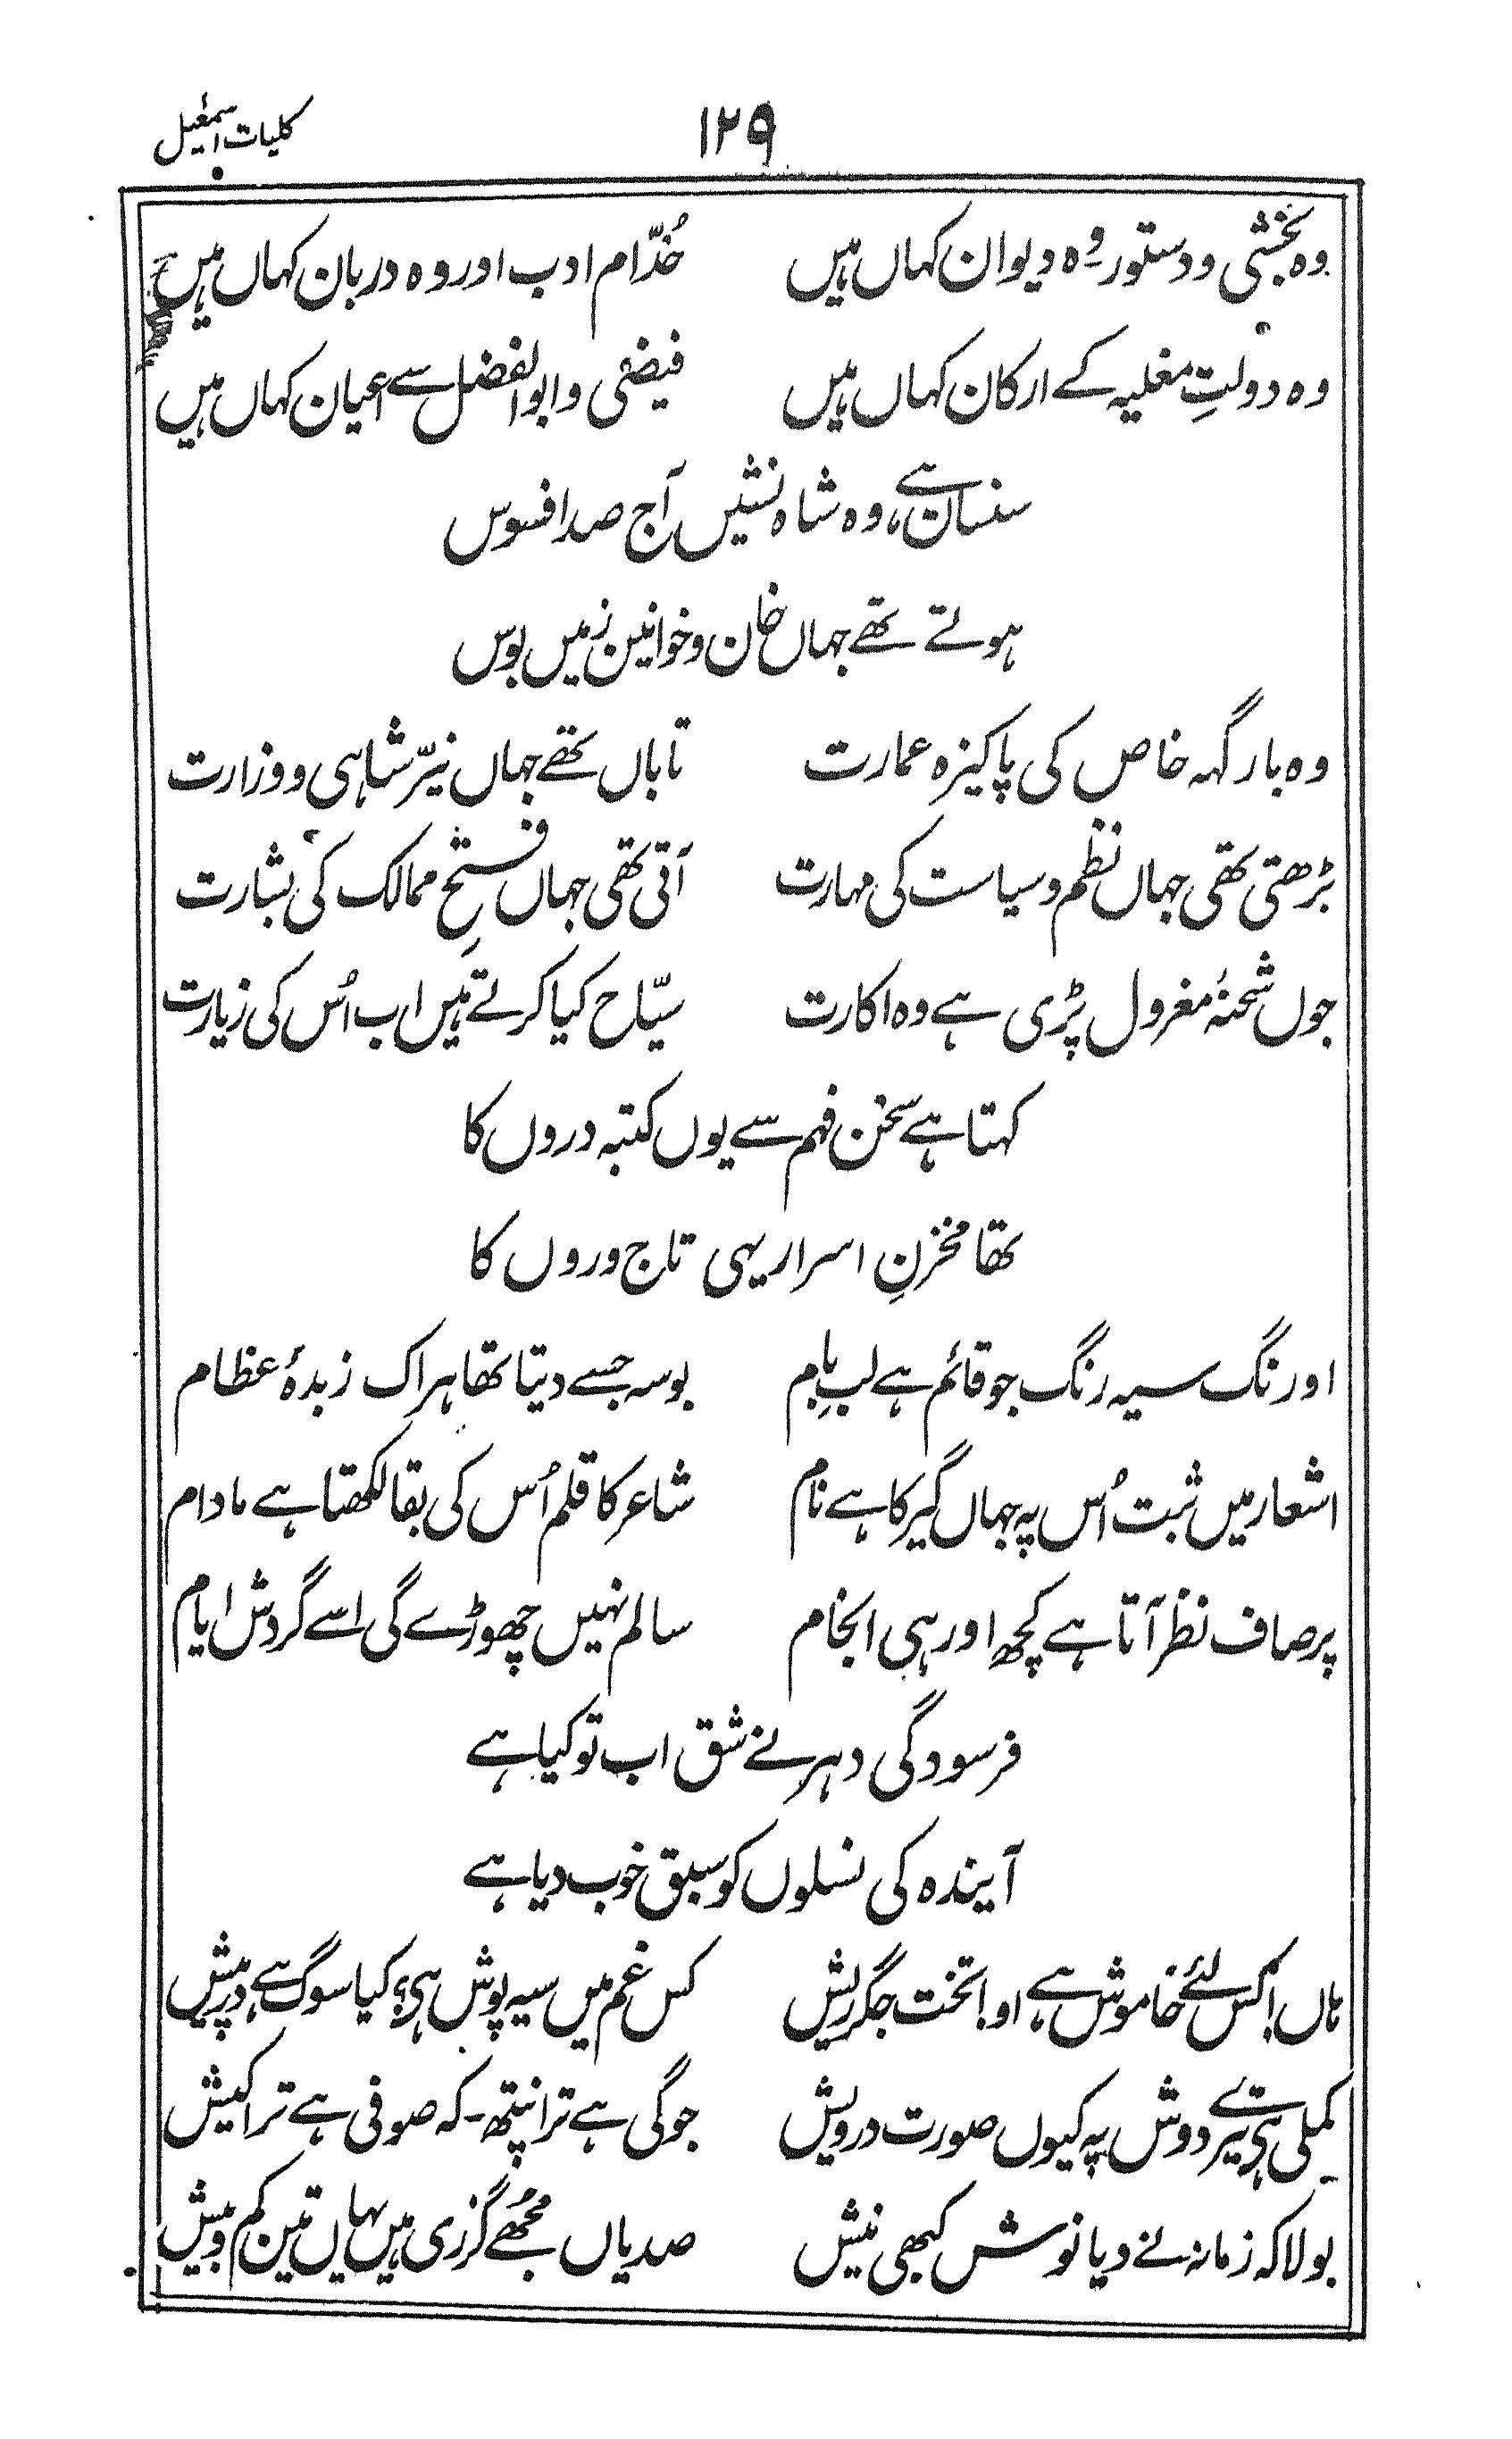 کلیات اسمٰعیل ۱۲۹
وہ بخشی و دستور وہ دیوان کہاں ہیں خُدّام ادب اور وہ دربان کہاں ہیں
وہ دولتِ مغلیہ کے ارکان کہاں ہیں فیضی و ابوالفضل سے اعیان کہاں ہیں
سنسان ہے، وہ شاہ نشیں آج صد افسوس
ہوتے تھے جہاں خان و خوانین زمیں بوس
وہ بارگہہ خاص کی پاکیزہ عمارت تاباں تھے جہاں نیّر شاہی و وزارت
بڑھتی تھی جہاں نظم و سیاست کی مہارت آتی تھی جہاں فتحِ ممالک کی بشارت
جوں شحنۂ معزول پڑی ہے وہ اکارت سیّاح کیا کرتے ہیں اب اُس کی زیارت
کہتا ہے سخن فہم سے یوں کتبہ دروں کا
تھا مخزنِ اسرار یہی تاج وروں کا
اورنگ سیہ رنگ جو قائم ہے لبِ بام بوسہ جسے دیتا تھا ہر اک زبدۂ عظام
اشعار میں ثبت اُس پہ جہاں گیر کا ہے نام شاعر کا قلم اُس کی بقا لکھتا ہے مادام
پر صاف نظر آتا ہے کچھ اور ہی انجام سالم نہیں چھوڑے گی اسے گردش ایام
فرسودگی دہر نے شق اب تو کیا ہے
آیندہ کی نسلوں کو سبق خوب دیا ہے
ہاں! کس لئے خاموش ہے، او! تخت جگر ریش کس غم میں سیہ پوش ہی؟ کیا سوگ ہے درپیش
کملی ہی تیرے دوش پہ کیوں صورت درویش جوگی ہے ترا پنتھ - کہ صوفی ہے ترا کیش
بولا کہ زمانہ نے دیا نوش کبھی نیش صدیاں مجُھے گزری ہیں یہاں تین کم و بیش